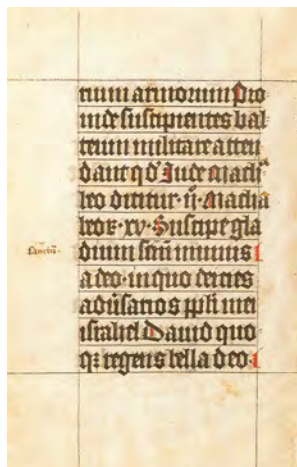 num armorum Pro
inde suscipientes bal
teum militare atten
dant qd Iude mach
beo dicitur · ij · Macha
beor · xv · Suscipe gla
dium scm munus
a deo · in quo deicies
adusarios ppli mei
israhel Dauid quo
qz regens bella deo ·